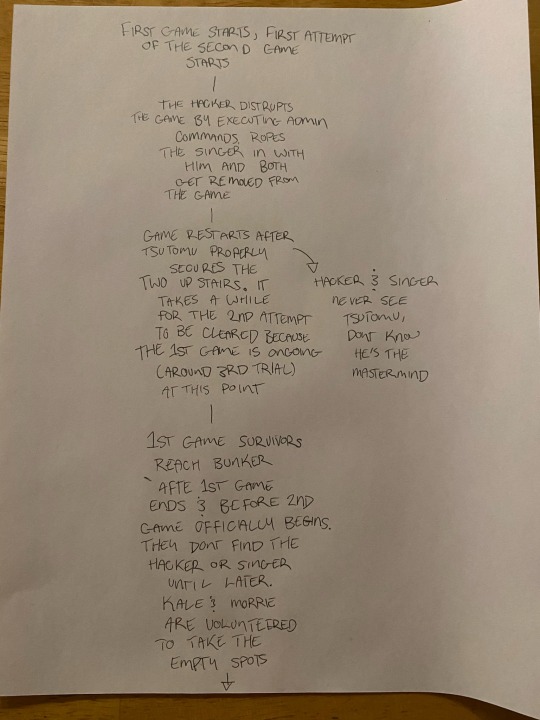 FIRST GAME STARTS, FIRST ATTEMPT
OF THE SECOND GAME
STARTS
THE HACKER DISTRUPTS
THE GAME BY EXECUTING ADMIN
COMMANDS, ROPES
THE SINGER IN WITH
HIM AND BOTH
GET REMOVED FROM
THE GAME
GAME RESTARTS AFTER
TSUTOMU PROPERLY
SECURES THE
TWO UPSTAIRS. IT
TAKES A WHILE
FOR THE 2ND ATTEMPT
TO BE CLEARED BECAUSE
THE 1ST GAME IS ONGOING
(AROUND 3RD TRIAL)
AT THIS POINT
HACKER & SINGER
NEVER SEE
TSUTOMU,
DONT KNOW
HE'S THE
MASTERMIND
1ST GAME SURVIVORS
REACH BUNKER
AFTE 1ST GAME
ENDS & BEFORE 2ND
GAME OFFICIALLY BEGINS.
THEY DONT FIND THE
HACKER OR SINGER
UNTIL LATER.
KALE & MORRIE
ARE VOLUNTEERED
TO TAKE THE
EMPTY SPOTS